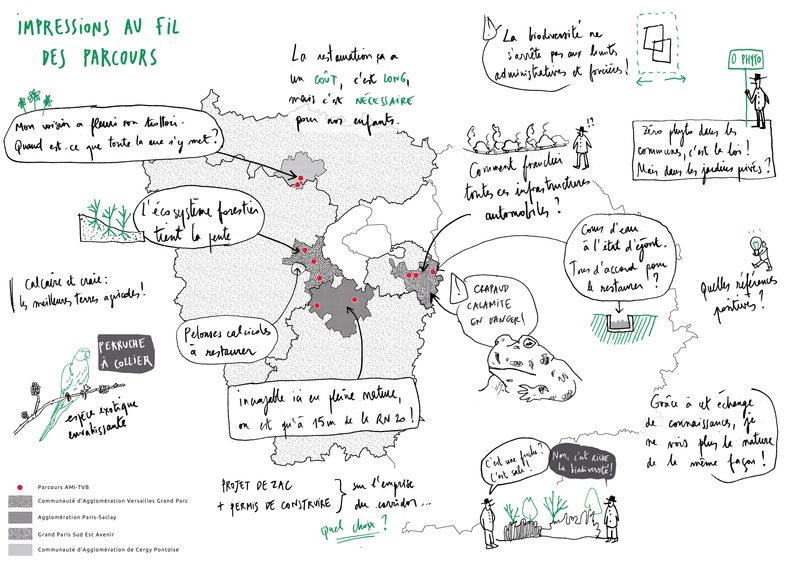 IMPRESSIONS AU FIL
DES PARCOURS
La restauration ça a
un COÛT, c'est LONG,
mais c'est NÉCESSAIRE
pour nos enfants.
La biodiversité ne
s'arrête pas aux limites
administratives et foncières !
0 PHYTO
Zéro phyto dans les
communes, c'est la loi !
Mais dans les jardins privés ?
Mon voisin a fleuri son trottoir.
Quand est-ce que toute la rue s'y met ?
!?
Comment franchir
toutes ces infrastructures
automobiles ?
L'écosystème forestier
tient la pente
Cours d'eau
à l'état d'égout.
Tous d'accord pour
le restaurer !?
Calcaire et craie :
les meilleures terres agricoles !
Quelles références
positives ?
CRAPAUD
CALAMITE
EN DANGER !
Pelouses calcicoles
à restaurer
PERRUCHE
À COLLIER
espèce exotique
envahissante
incroyable ici en pleine nature,
on est qu'à 15m de la RN20 !
Grâce à cet échange
de connaissances, je
ne vois plus la nature
de la même façon !
C'est une friche ?
C'est sale !
Non, c'est RICHE
la biodiversité !
PROJET DE ZAC
+ PERMIS DE CONSTRUIRE
sur l'emprise
du corridor...
quel choix ?
Parcours AMI-TVB
Communauté d'Agglomération Versailles Grand Parc
Agglomération Paris-Saclay
Grand Paris Sud Est Avenir
Communauté d'Agglomération de Cergy Pontoise